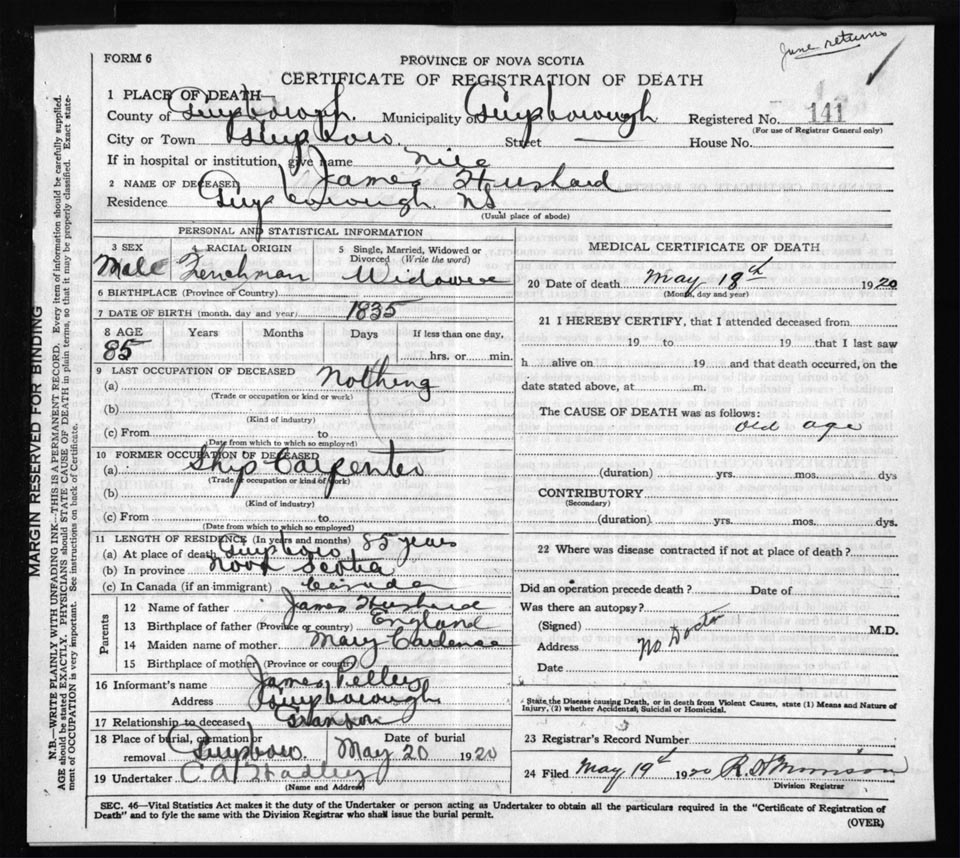 June returns
FORM 6
PROVINCE OF NOVA SCOTIA
CERTIFICATE OF REGISTRATION OF DEATH
1 PLACE OF DEATH—
County of Guysborough. Municipality of Guysborough Registered No. 141
(For use of Registrar General only)
City or Town Guysboro Street House No.
If in hospital or institution, give name
2 NAME OF DECEASED James
Residence Guysborough NS
(Usual place of abode)
PERSONAL AND STATISTICAL INFORMATION
3 SEX Male
4 RACIAL ORIGIN Frenchman
5 Single, Married, Widowed or Divorced (Write the word)
6 BIRTHPLACE (Province or Country)
7 DATE OF BIRTH (month, day and year) 1835
8 AGE Years Months Days If less than one day,
85 hrs. or min.
9 LAST OCCUPATION OF DECEASED
(a) Nothing
(Trade or occupation or kind or work)
(b)
(Kind of industry)
(c) From to
(Date from which to which so employed)
10 FORMER OCCUPATION OF DECEASED
(a) Ship Carpenter
(Trade or occupation or kind of work)
(b)
(Kind of industry)
(c) From to
(Date from which to which so employed)
11 LENGTH OF RESIDENCE (In years and months) 85 years
(a) At place of death Guysboro
(b) In province Nova Scotia
(c) In Canada (if an immigrant) Canada
Parents
12 Name of father James
13 Birthplace of father (Province or country) England
14 Maiden name of mother Mary
15 Birthplace of mother (Province or country)
16 Informant's name James
Address Guysborough
17 Relationship to deceased Granson
18 Place of burial, cremation or removal Guysboro. Date of burial May 20 1920
19 Undertaker C. A.
(Name and Address)
MEDICAL CERTIFICATE OF DEATH
20 Date of death May 18th 1920
(Month, day and year)
21 I HEREBY CERTIFY, that I attended deceased from
19 to 19 that I last saw
h alive on 19 and that death occurred, on the
date stated above, at m.
The CAUSE OF DEATH was as follows:
old age
(duration) yrs. mos. dys
CONTRIBUTORY
(Secondary)
(duration) yrs. mos. dys.
22 Where was disease contracted if not at place of death?
Did an operation precede death? Date of
Was there an autopsy?
(Signed) M.D.
Address No Doctor
Date
State the Disease causing Death, or in death from Violent Causes, state (1) Means and Nature of
Injury, (2) whether Accidental, Suicidal or Homicidal.
23 Registrar's Record Number
24 Filed May 19th 1920
Division Registrar
SEC. 46—Vital Statistics Act makes it the duty of the Undertaker or person acting as Undertaker to obtain all the particulars required in the "Certificate of Registration of
Death" and to fyle the same with the Division Registrar who shall issue the burial permit.
(OVER)
MARGIN RESERVED FOR BINDING
N.B.—WRITE PLAINLY WITH UNFADING INK—THIS IS A PERMANENT RECORD. Every item of information should be carefully supplied.
AGE should be stated EXACTLY. PHYSICIANS should STATE CAUSE OF DEATH in plain terms, so that it may be properly classified. Exact state-
ment of OCCUPATION is very important. See instructions on back of Certificate.